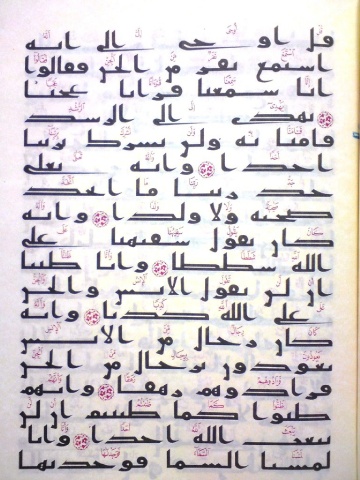 قل اوحى الى انه
استمع نفر من الجن فقالوا
انا سمعنا قرانا عجبا
يهدى الى الرشد
فامنا به ولن نشرك بربنا
احدا وانه تعلى
جد ربنا ما اتخذ
صحبة ولا ولدا وانه
كان يقول سفيهنا على
الله شططا وانا ظننا
ان لن تقول الانس والجن
على الله كذبا وانه
كان رجال من الانس
يعوذون برجال من الجن
فزادوهم رهقا وانهم
ظنوا كما ظننتم ان لن
يبعث الله احدا وانا
لمسنا السما فوجدنها